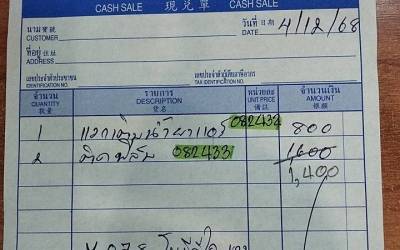 CASH SALE 現兌單 CASH SALE
นาม寶號 CUSTOMER วันที่日期 DATE 4/12/68
ที่อยู่住址 ADDRESS
เลขประจำตัวประชาชน เลขประจำตัวผู้เสียภาษีอากร
IDENTIFICATION NO. TAX IDENTIFICATION NO.
จำนวน รายการ หน่วยละ จำนวนเงิน
QUANTITY DESCRIPTION UNIT PRICE AMOUNT
數量 貨名 備註 銀額
1 082434 800
2 ติดฟิล์ม 082433 1,600
1,400